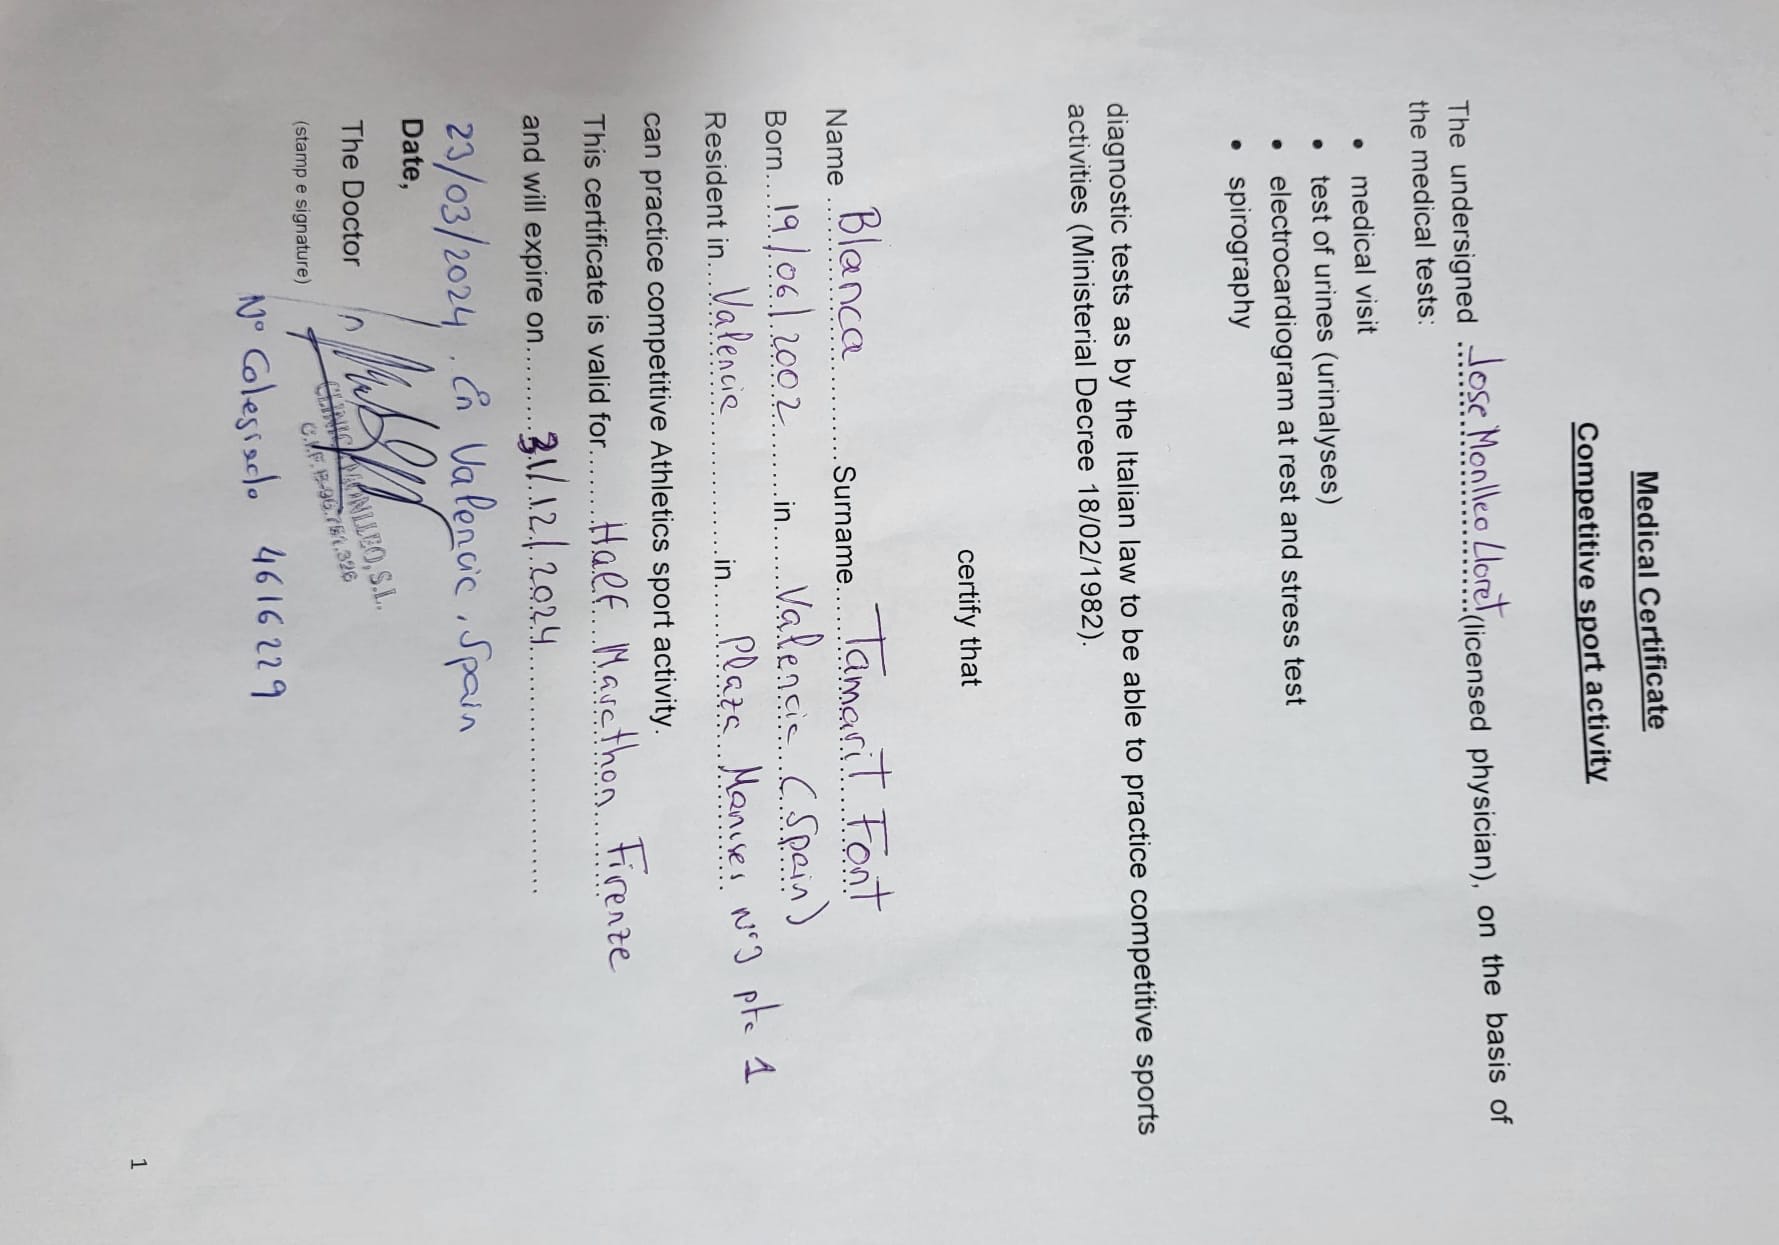 Medical Certificate
Competitive sport activity
The undersigned Jose Monlleo Lloret (licensed physician), on the basis of
the medical tests:
• medical visit
• test of urines (urinalyses)
• electrocardiogram at rest and stress test
• spirography
diagnostic tests as by the Italian law to be able to practice competitive sports
activities (Ministerial Decree 18/02/1982).
certify that
Name Blanca Surname Tamarit Font
Born 19/06/2002 in Valencia (Spain)
Resident in Valencia in Plaza Manises Nº3 pta 1
can practice competitive Athletics sport activity.
This certificate is valid for Half Marathon Firenze
and will expire on 31/12/2024
23/03/2024. En Valencia, Spain
Date,
The Doctor
CLINICA MONLLEO, S.L.
C.I.F. B-96.751.326
(stamp e signature)
Nº Colegiado 4616229
1